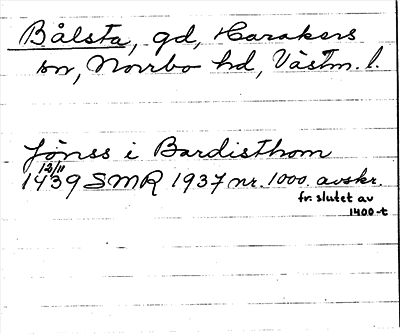 Bålsta, gd, Harakers
sn, Norrbo hd, Västm. l.
Jönss i Bardisthom
12/11
1439 SMR 1937 nr. 1000. avskr.
fr. slutet av
1400-t